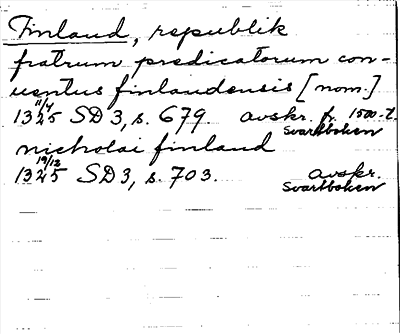 Finland, republik
fratrum predicatorum con-
uentus finlandensis [nom.]
1325 11/4 SD 3, s. 679 avskr. fr. 1500-t.
Svartboken
nicholai finland
1325 19/12 SD 3, s. 703. avskr.
Svartboken